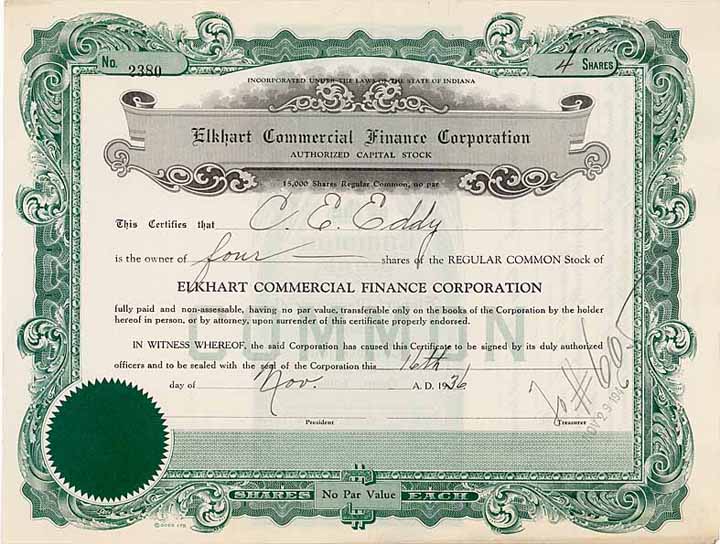 No. 2380
4 SHARES
INCORPORATED UNDER THE LAWS OF THE STATE OF INDIANA
Elkhart Commercial Finance Corporation
AUTHORIZED CAPITAL STOCK
15,000 Shares Regular Common, no par
This Certifies that C. E. Eddy
is the owner of four shares of the REGULAR COMMON Stock of
ELKHART COMMERCIAL FINANCE CORPORATION
fully paid and non-assessable, having no par value, transferable only on the books of the Corporation by the holder
hereof in person, or by attorney, upon surrender of this certificate properly endorsed.
COMMON
IN WITNESS WHEREOF, the said Corporation has caused this Certificate to be signed by its duly authorized
officers and to be sealed with the seal of the Corporation this 16th
day of Nov. A. D. 1936
To #605
NOV 29 194
President
Treasurer
SHARES No Par Value EACH
© GOES LTD.